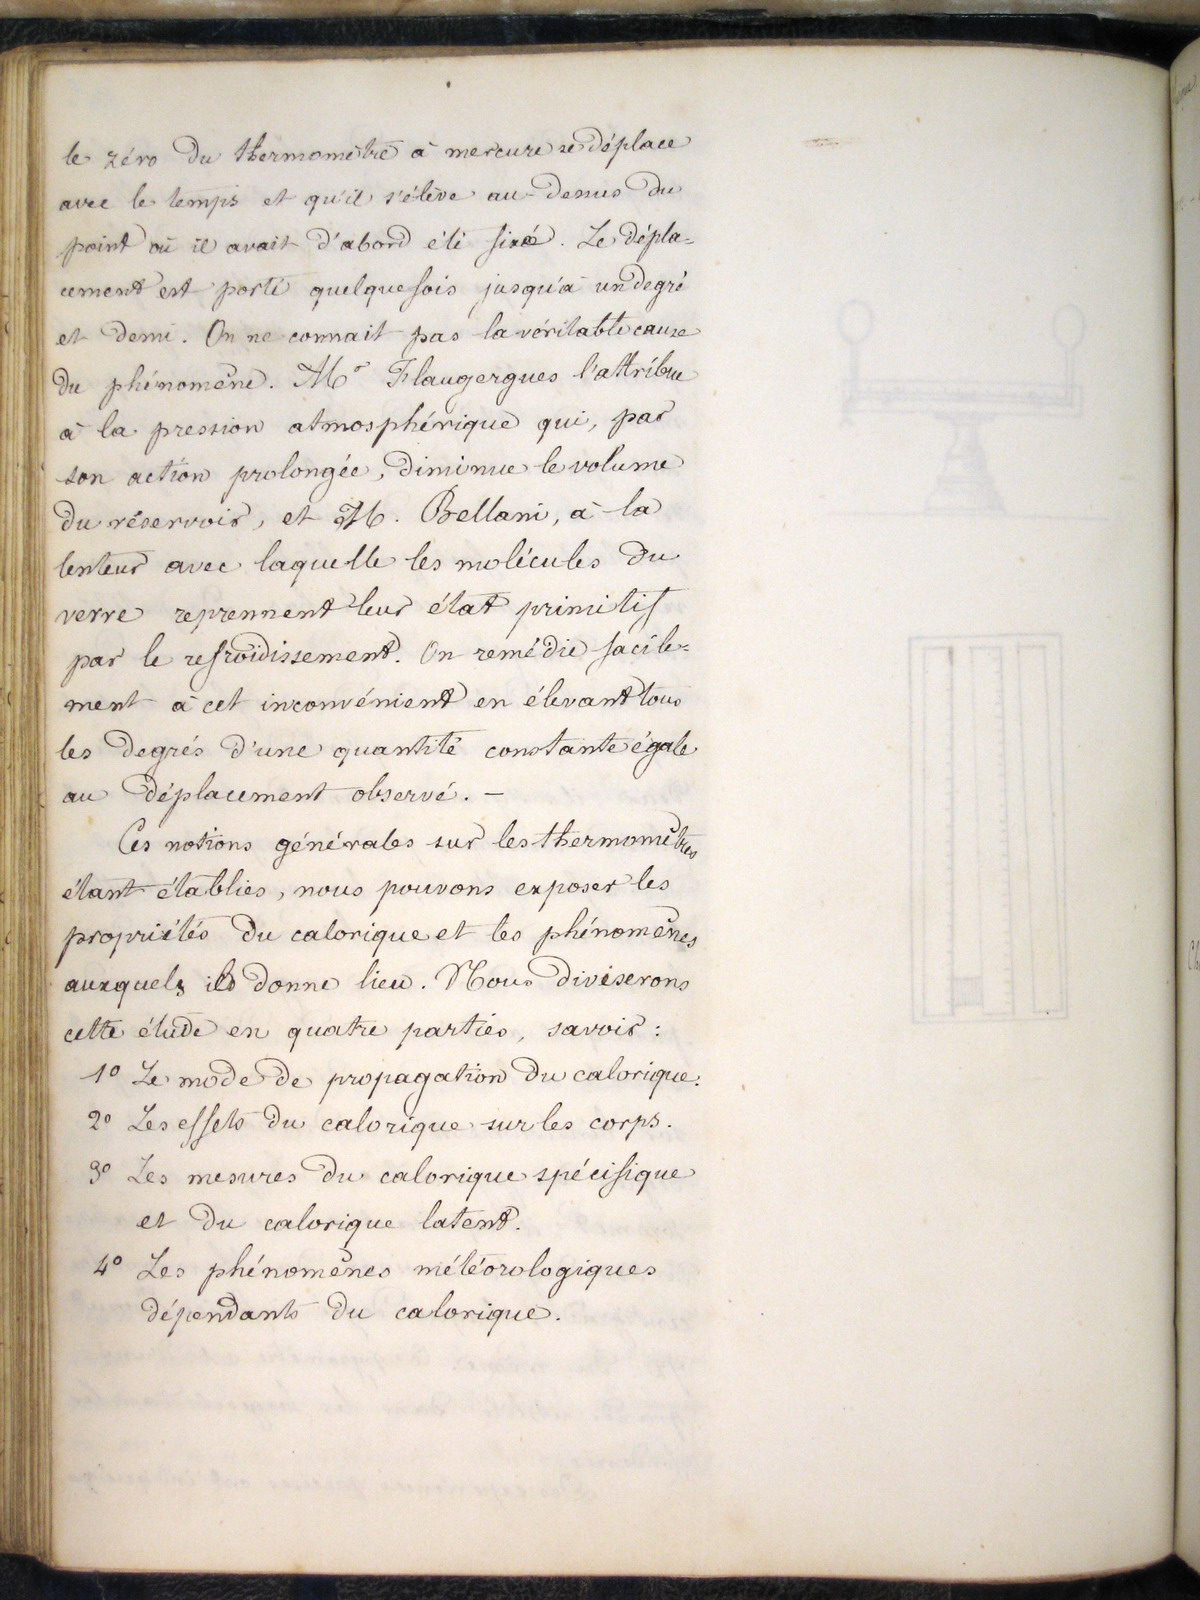 le zéro du thermomètre à mercure se déplace
avec le temps et qu'il s'élève au-dessus du
point où il avait d'abord été fixé. Le dépla=
cement est porté quelquefois jusqu'à un degré
et demi. On ne connait pas la véritable cause
du phénomène. Mr Flaugergues l'attribue
à la pression atmosphérique qui, par
son action prolongée, diminue le volume
du réservoir, et M. Bellani, à la
lenteur avec laquelle les molécules du
verre reprennent leur état primitif
par le refroidissement. On remédie facile=
ment à cet inconvénient en élevant tous
les degrés d'une quantité constante égale
au déplacement observé. —
Ces notions générales sur les thermomètres
étant établies, nous pouvons exposer les
propriétés du calorique et les phénomènes
auxquels il donne lieu. Nous diviserons
cette étude en quatre parties, savoir :
1º Le mode de propagation du calorique.
2º Les effets du calorique sur les corps.
3º Les mesures du calorique spécifique
et du calorique latent.
4º Les phénomènes météorologiques
dépendants du calorique.